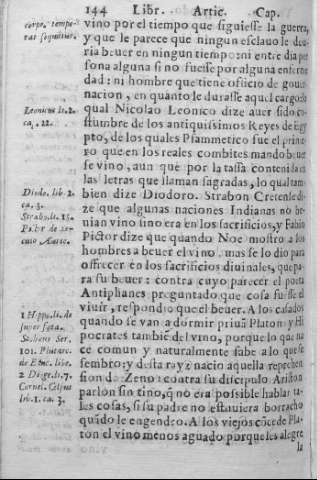 144 Libr. Artic. Cap.
corpo. tempe-
rat sequitur.
vino por el tiempo que siguiesse la guerra,
y que le parece que ningun esclauo le de-
ria beuer en ningun tiempo: ni entre dia per
sona alguna si no fuesse por alguna enferme
dad: ni hombre que tiene officio de gouer
nacion, en quanto le durasse aquel cargo: lo
Leonicus li. 2.
ca. 22.
qual Nicolao Leonico dize auer sido co-
stumbre de los antiquissimos Reyes de Egy
pto, de los quales Psammetico fue el prime
ro que en los reales combites mando beue
se vino, aun que por la tassa contenida en
las letras que llaman sagradas, lo qual tam
Diodo. lib. 2.
ca. 3.
Strabo. li. 15.
bien dize Diodoro. Strabon Cretense di
ze que algunas naciones Indianas no be-
uian vino sino era en los sacrificios, y Fabio
Pictor dize que quando Noe mostro a los
hombres a beuer el vino, mas se lo dio para
offrecer en los sacrificios diuinales, que pa-
ra su beuer: contra cuyo parecer el poeta
Antiphanes preguntado que cosa fuesse el
viuir, respondio que el beuer. A los casados
1 Hypo. li. de
quando se van a dormir priuā Platon y Hi
pocrates tambiē del vino, porque lo que na
101. Plutarc.
ce comun y naturalmente sabe a lo que se
sembro: y desta rayz nacio aquella reprehen
2 Dioge. li. 7.
sion de Zeno: contra su discipulo Ariston
Cornel. Celsus
lib. 1. ca. 3.
parlon sin tino, q̄ no era possible hablar ta-
les cosas, si su padre no estuuiera borracho
quãdo le engendro. A los viejos cōcede Pla-
ton el vino menos aguado porque les alegre
la